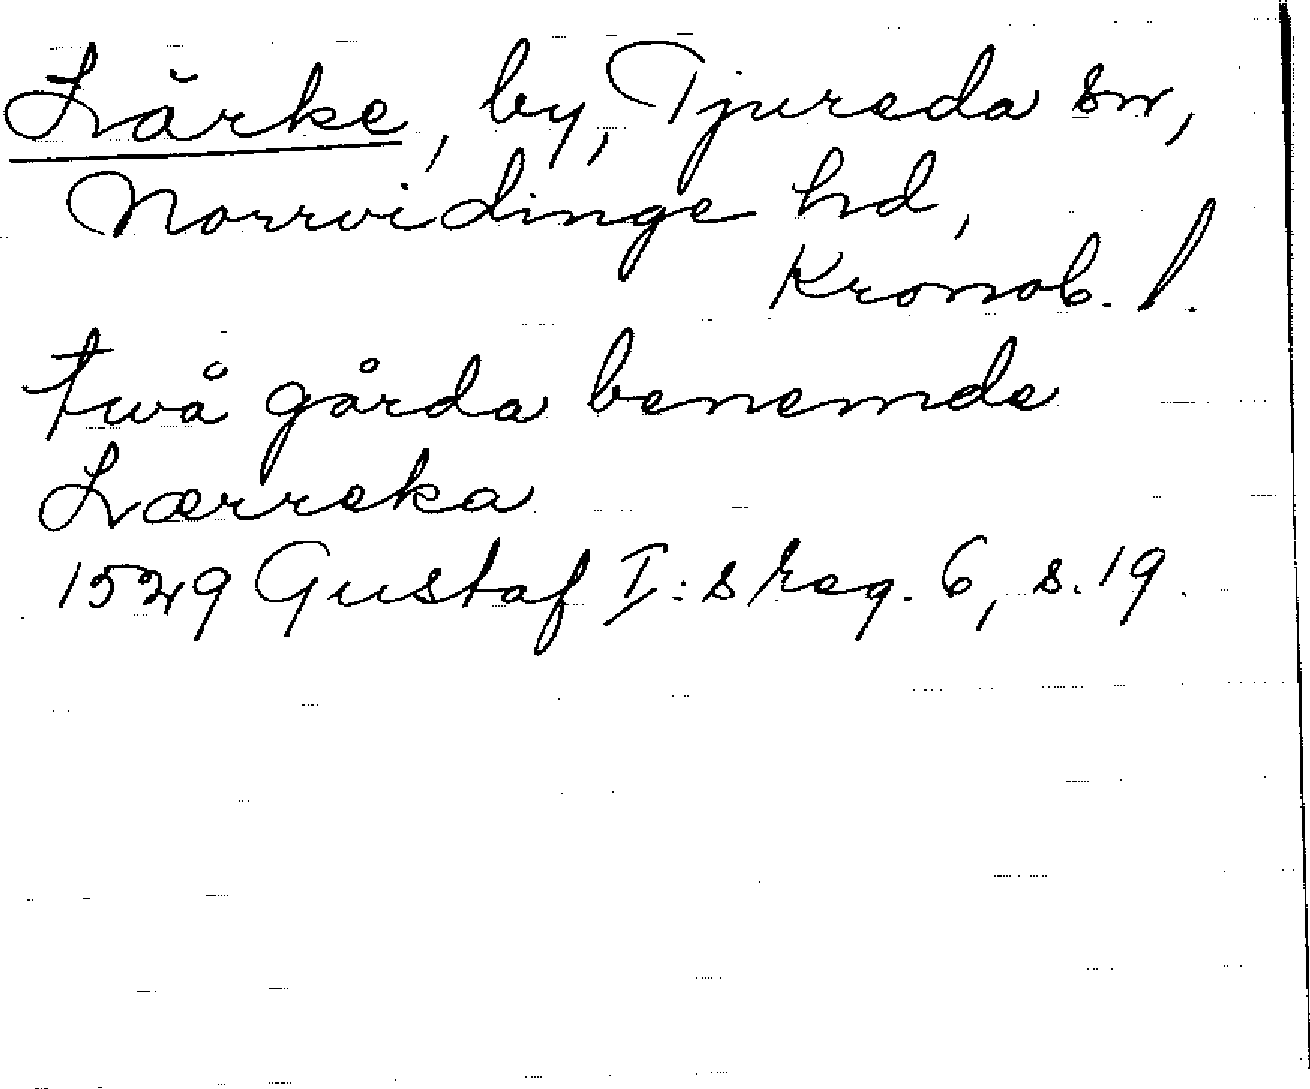 Lärke, by, Tjureda sn,
Norrvidinge hd,
Kronob. l.
Två gårda benemde
Lærreka
1529 Gustaf I:s reg. 6, s. 19.